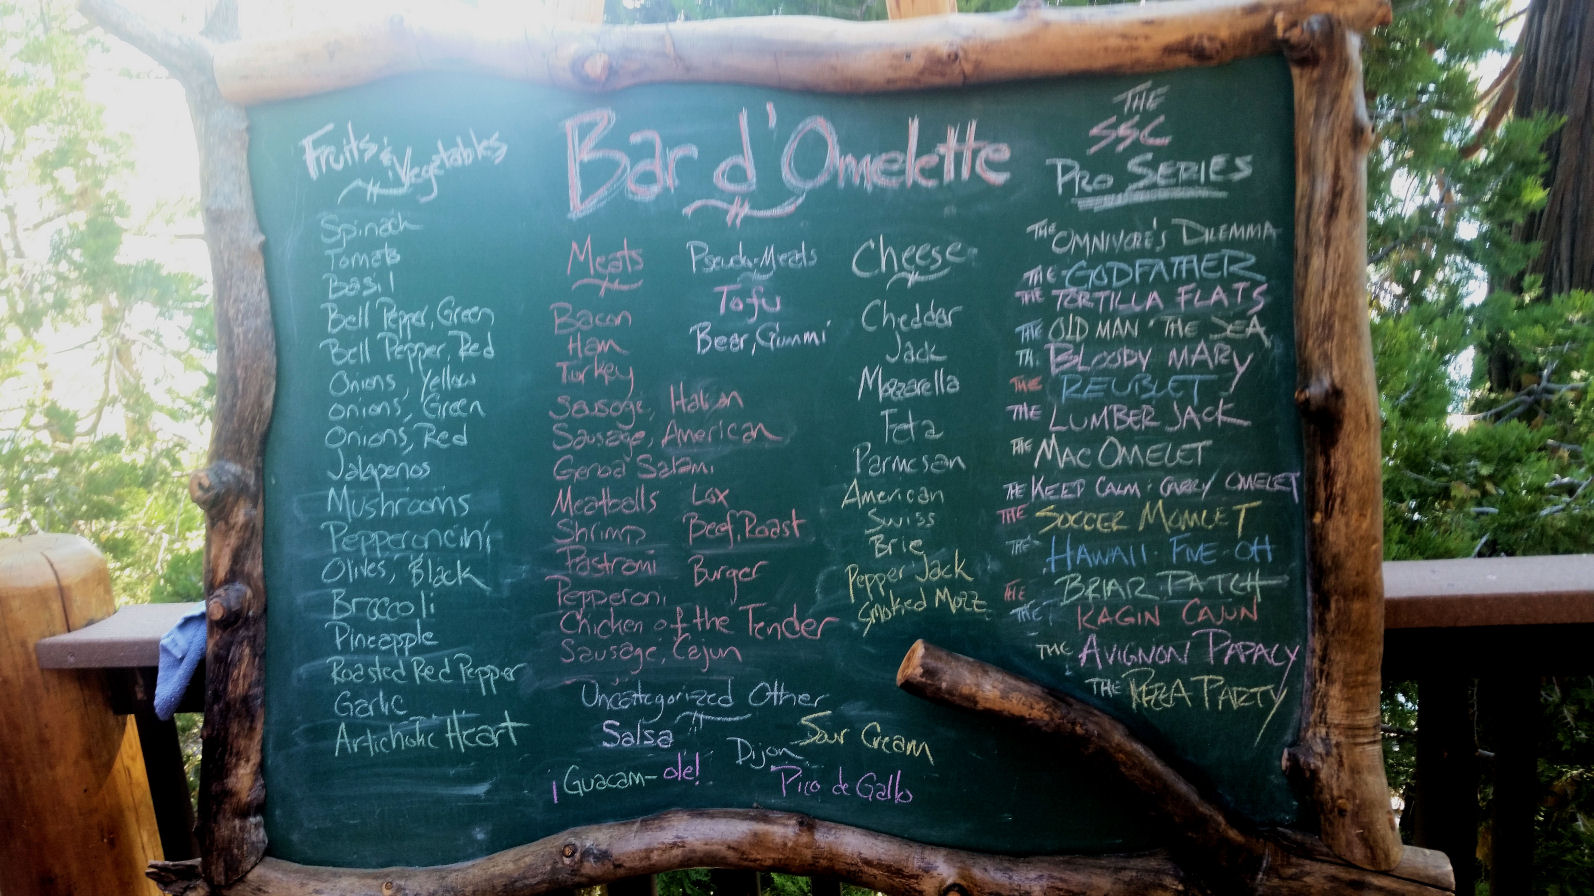 Fruits & Vegetables
Spinach
Tomato
Basil
Bell Pepper, Green
Bell Pepper, Red
Onions, Yellow
Onions, Green
Onions, Red
Jalapenos
Mushrooms
Pepperoncini
Olives, Black
Broccoli
Pineapple
Roasted Red Pepper
Garlic
Artichoke Heart
Bar d'Omelette
Meats
Bacon
Ham
Turkey
Sausage, Italian
Sausage, American
Genoa Salami
Meatballs
Shrimp
Pastrami
Pepperoni
Chicken of the Tender
Sausage, Cajun
Lox
Beef, Roast
Burger
Pseudo-Meats
Tofu
Bear, Gummi
Cheese
Cheddar
Jack
Mozzarella
Feta
Parmesan
American
Swiss
Brie
Pepper Jack
Smoked Mozz
Uncategorized Other
Salsa
Sour Cream
Dijon
¡Guacam-ole!
Pico de Gallo
THE
SSC
PRO SERIES
THE OMNIVORE'S DILEMMA
THE GODFATHER
THE TORTILLA FLATS
THE OLD MAN THE SEA
THE BLOODY MARY
THE REUBLET
THE LUMBER JACK
THE MAC OMELET
THE KEEP CALM & CARRY OMELET
THE SOCCER MOMLET
THE HAWAII FIVE-OH
THE BRIAR PATCH
THE KAGIN CAJUN
THE AVIGNON PAPACY
THE PIZZA PARTY